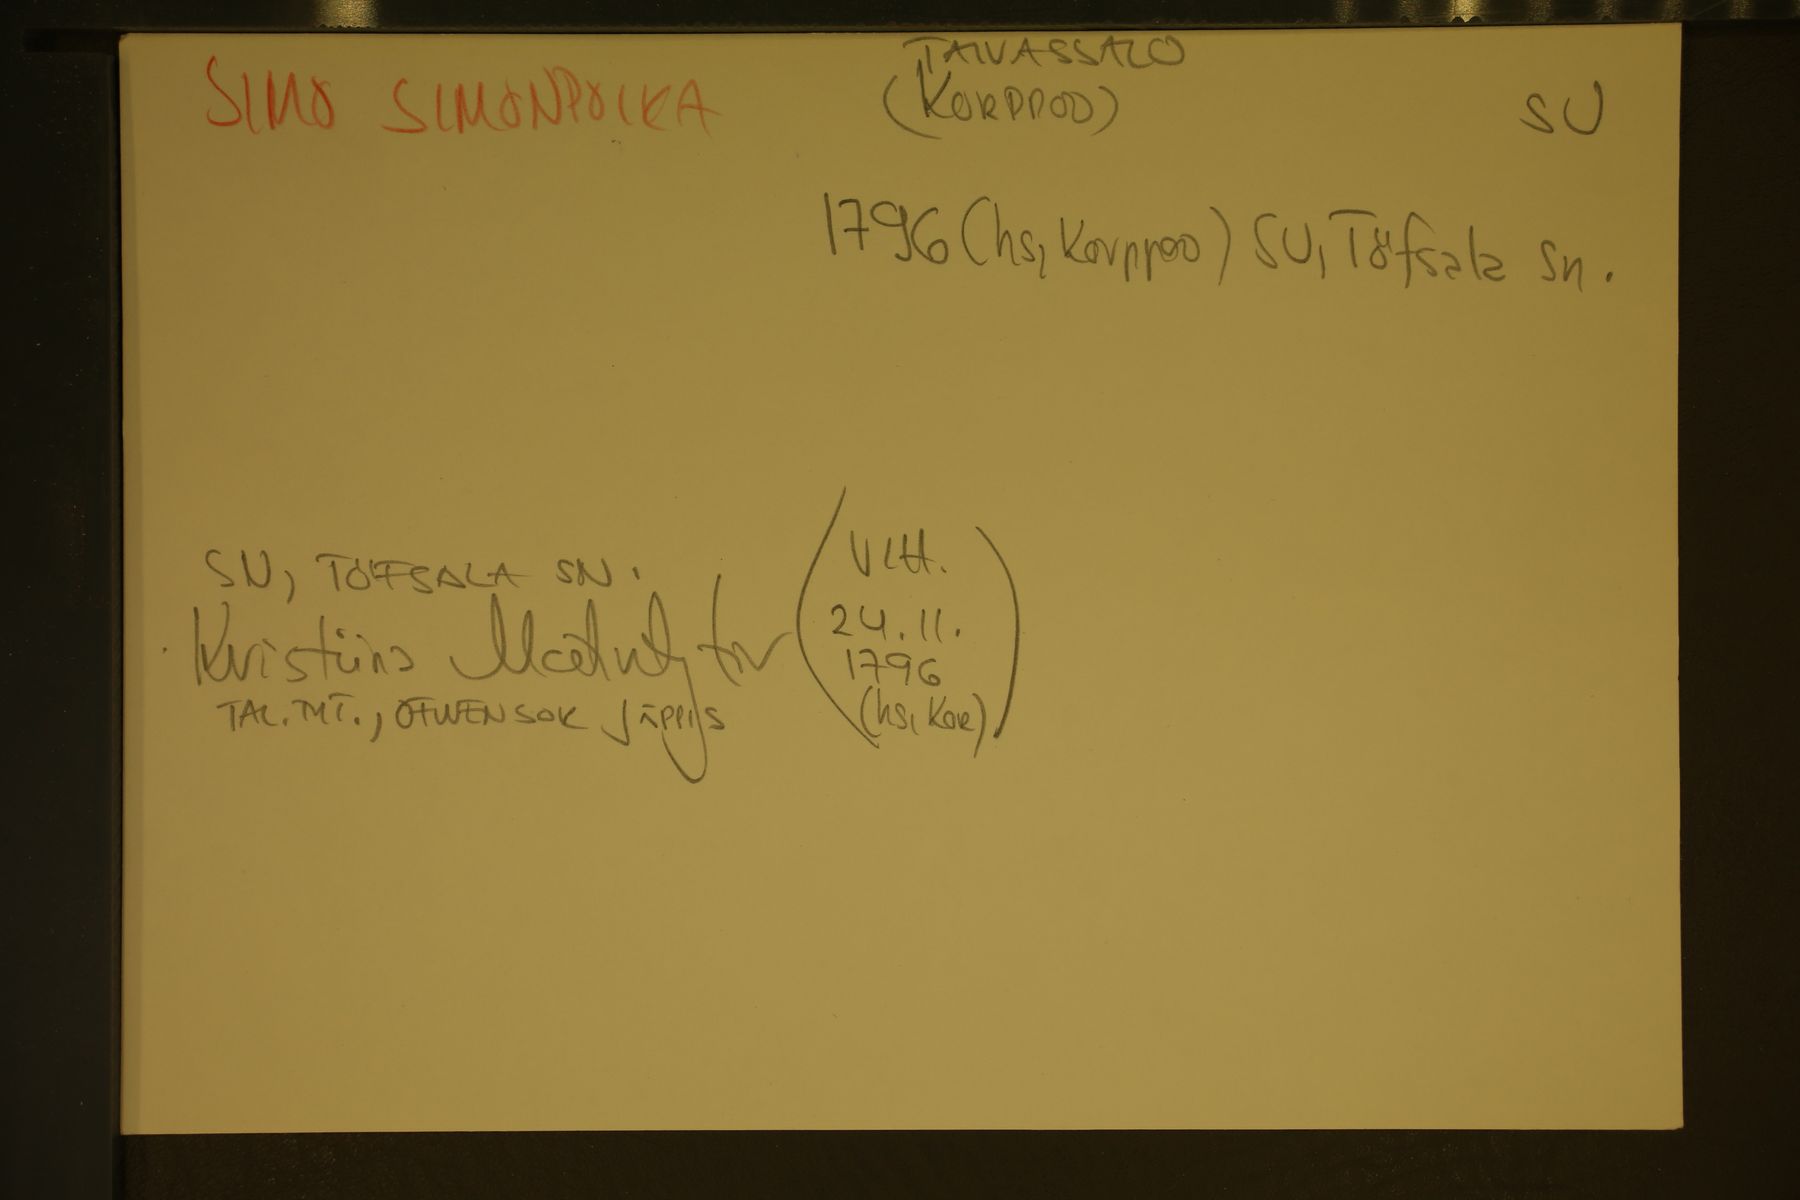 SIMO SIMONPOIKA
TAIVASSALO
(KORPPOO)
SU
1796 (hs, Korppoo) SU, Töfsala sn.
SN, TÖFSALA SN.
Kristiina tr
TAL. TYT., JÄPPIS
VIH.
24.11.
1796
(hs, KOR)